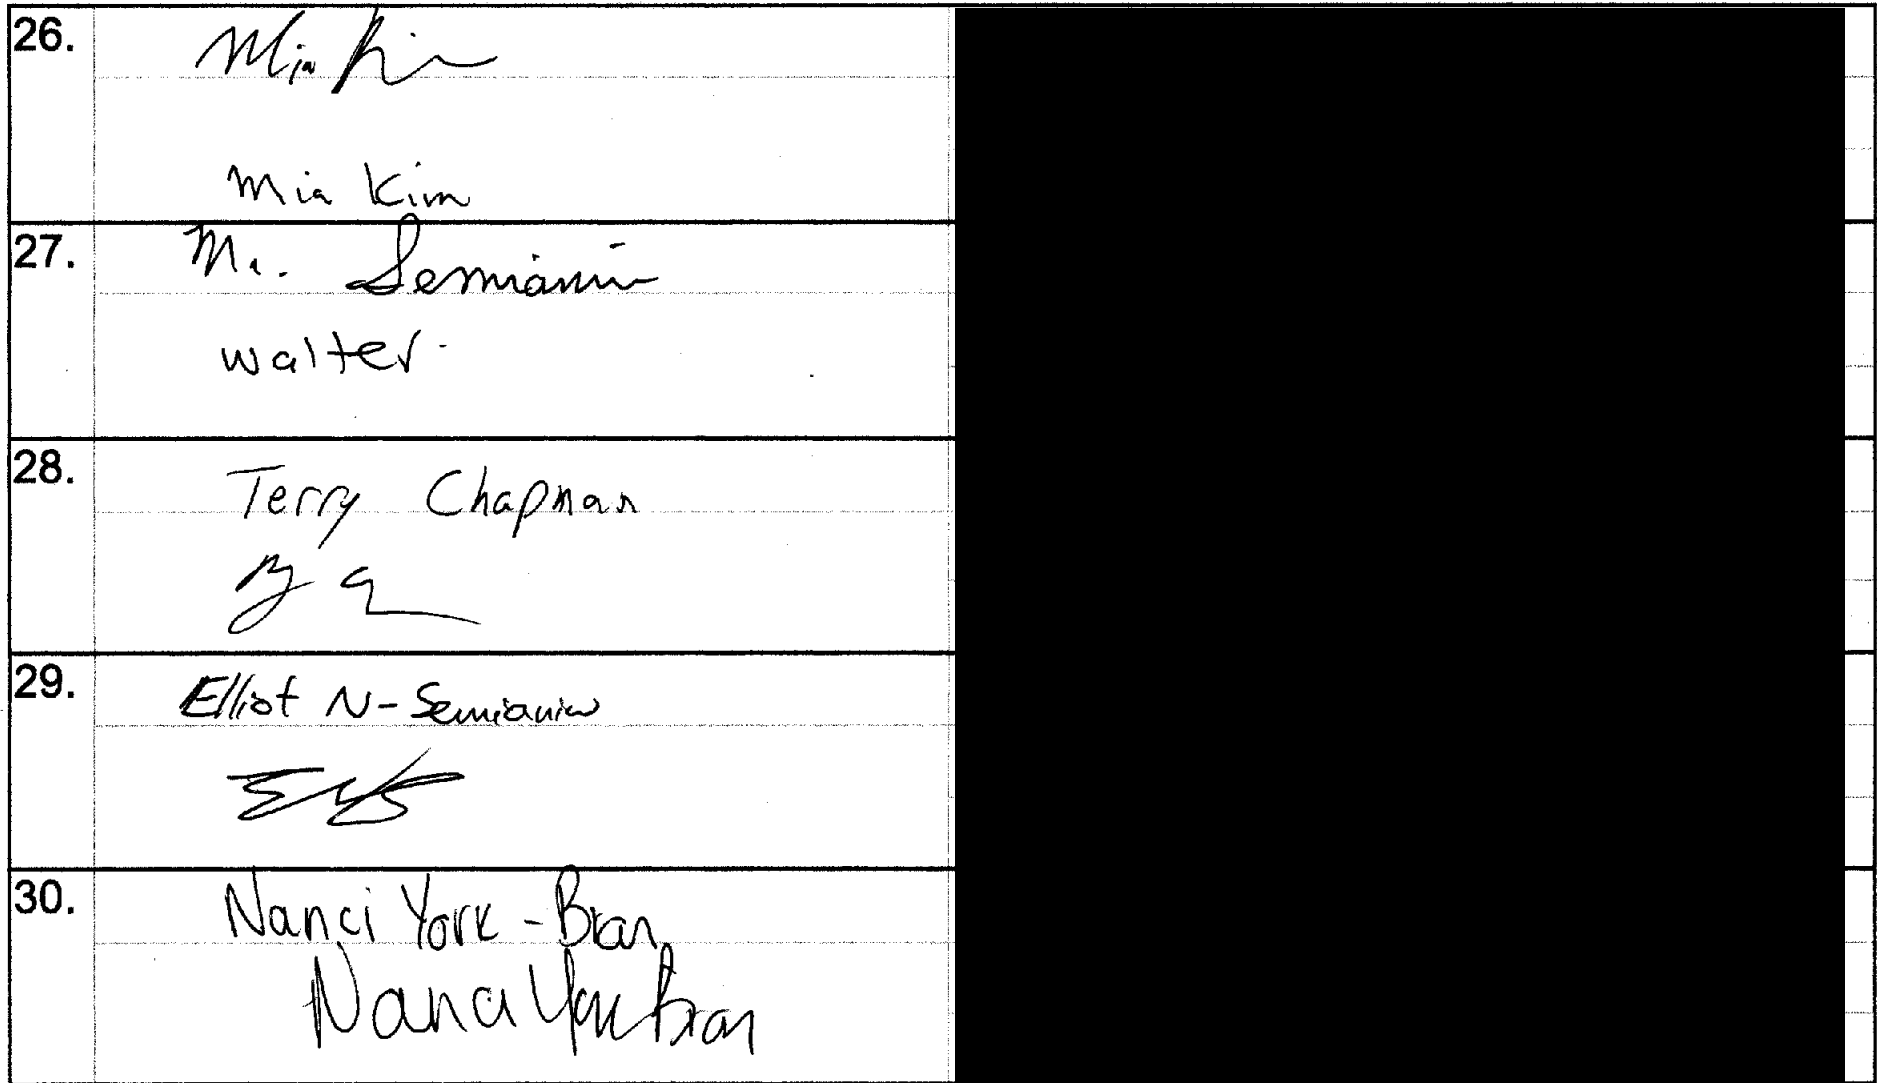 26. Mia Kim
Mia Kim
27. Mr. Semianiw
Walter
28. Terry Chapman
29. Elliot N-Semianiw
30. Nanci York-Bran
Nanci York Bran